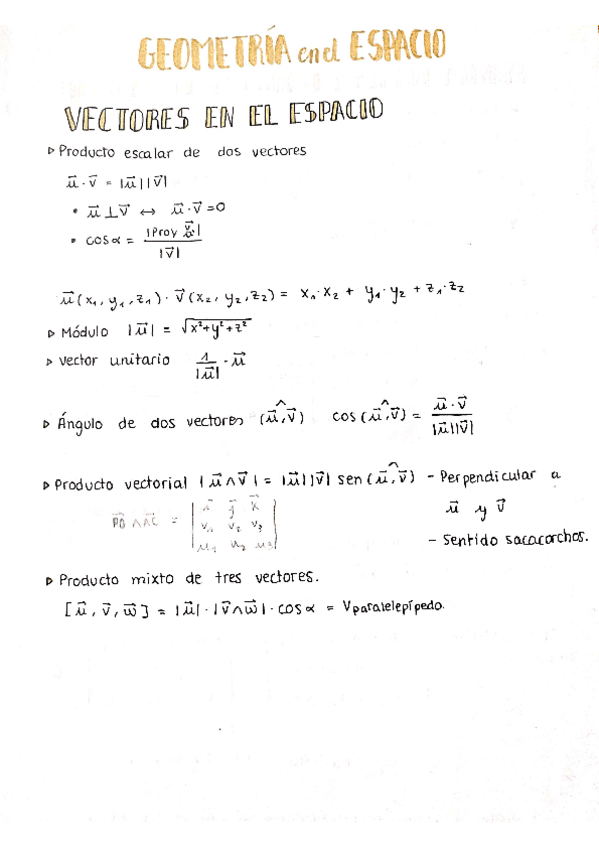 GEOMETRÍA en el ESPACIO
VECTORES EN EL ESPACIO
▹ Producto escalar de dos vectores
u⃗ · v⃗ = |u⃗| |v⃗|
• u⃗ ⊥ v⃗ ↔ u⃗ · v⃗ = 0
• cos α = |Proy v⃗ u⃗| / |v⃗|
u⃗ (x₁, y₁, z₁) · v⃗ (x₂, y₂, z₂) = x₁·x₂ + y₁·y₂ + z₁·z₂
▹ Módulo |u⃗| = √x²+y²+z²
▹ vector unitario 1/|u⃗| · u⃗
▹ Ángulo de dos vectores (u⃗,^v⃗) cos (u⃗,^v⃗) = u⃗ · v⃗ / |u⃗||v⃗|
▹ Producto vectorial |u⃗ ∧ v⃗| = |u⃗| |v⃗| sen (u⃗,^v⃗) - Perpendicular a
u⃗ y v⃗
- Sentido sacacorchos.
∧ AC⃗ = | i⃗ j⃗ k⃗
v₁ v₂ v₃
u₁ u₂ u₃ |
▹ Producto mixto de tres vectores.
[u⃗, v⃗, w⃗] = |u⃗| · |v⃗ ∧ w⃗| · cos α = Vparalelepípedo.